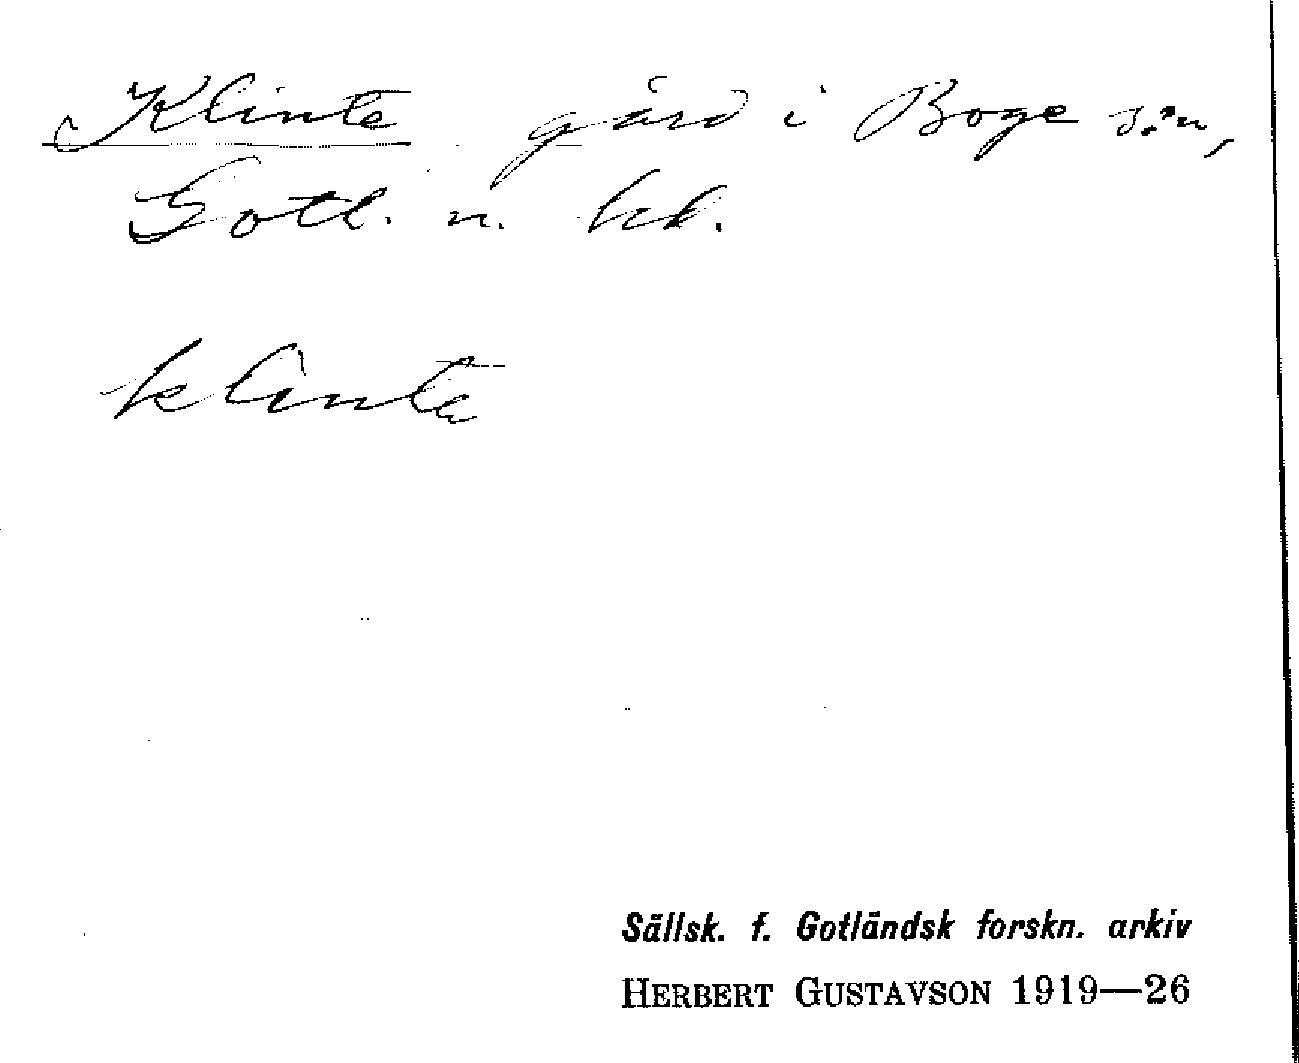 Klinte gård i Boge s:n,
Gotl. n. hd.
klintä
Sällsk. f. Gotländsk forskn. arkiv
HERBERT GUSTAVSON 1919—26